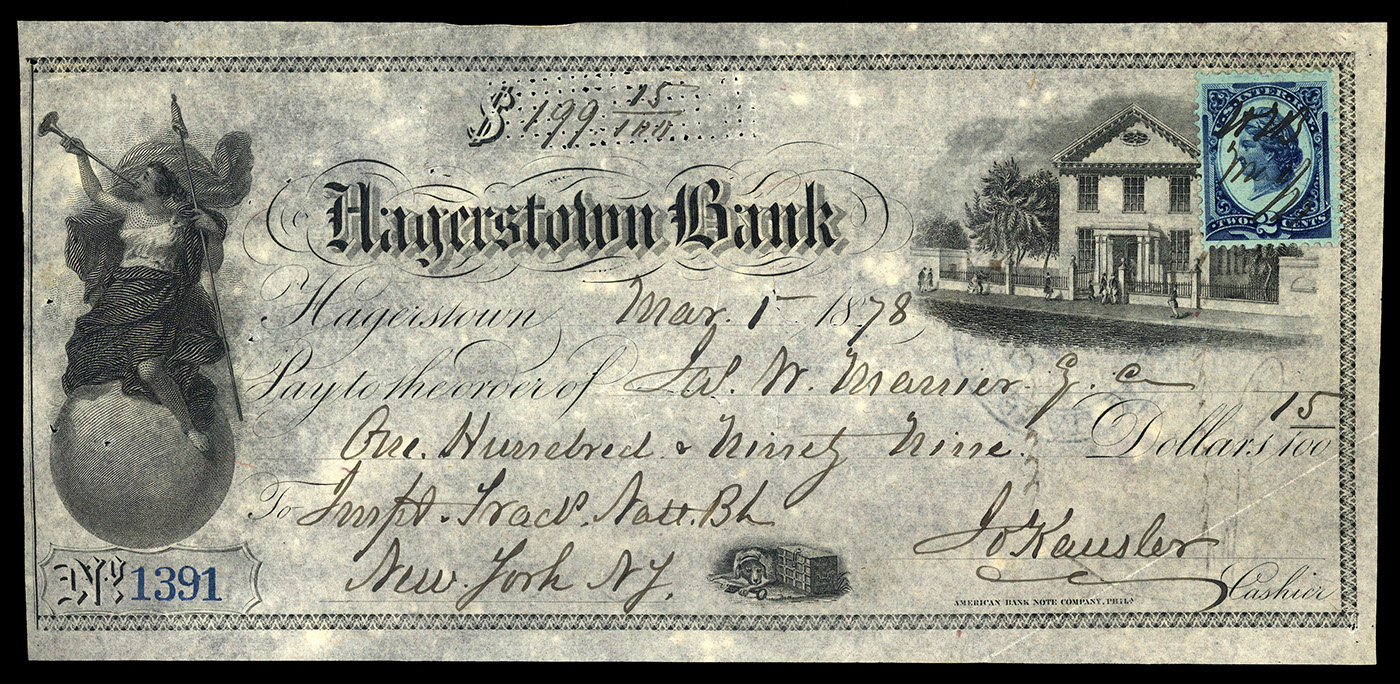 $199 15/100
U.S. INTER. REV.
TWO 2 CENTS
Hagerstown Bank
Hagerstown Mar. 1 1878
Pay to the order of Jas. W. Marrier
One Hundred & Ninety Nine Dollars 15/100
To Impt. Trads. Natl. Bk
New York NY.
Jo Kausler
Cashier
No. 1391
AMERICAN BANK NOTE COMPANY, PHILA